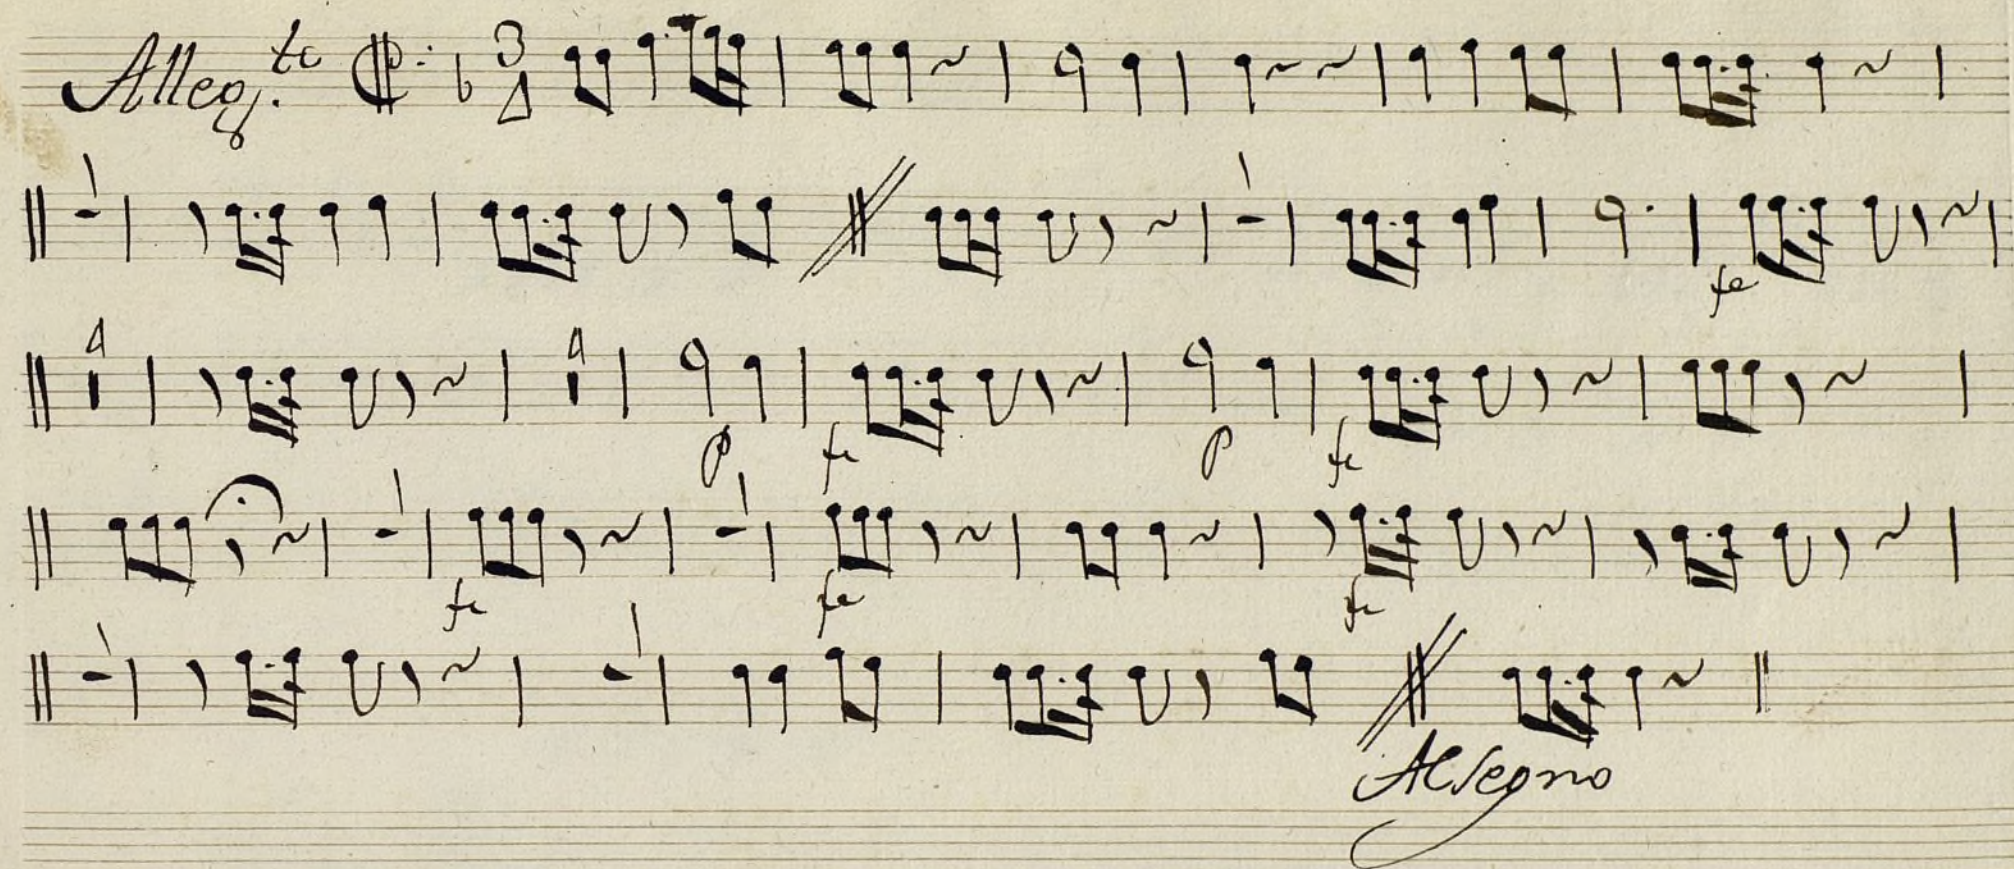 Alleg.to 3
4
fe
4 4
p fe p fe
fe fe fe
Al Segno